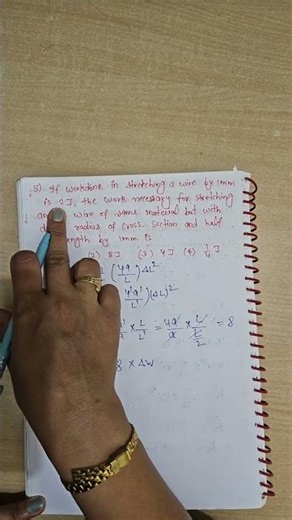 5) If workdone in stretching a wire by 1mm
is 2J, the work necessary for stretching
wire of same material but with
radius of cross section and half
length by 1mm is
(2) 8J (3) 4J (4) 1/4 J
(YA/L) ΔL²
(ΔL)²
× L/L' = 4a/a × L/(L/2) = 8
8 × ΔW